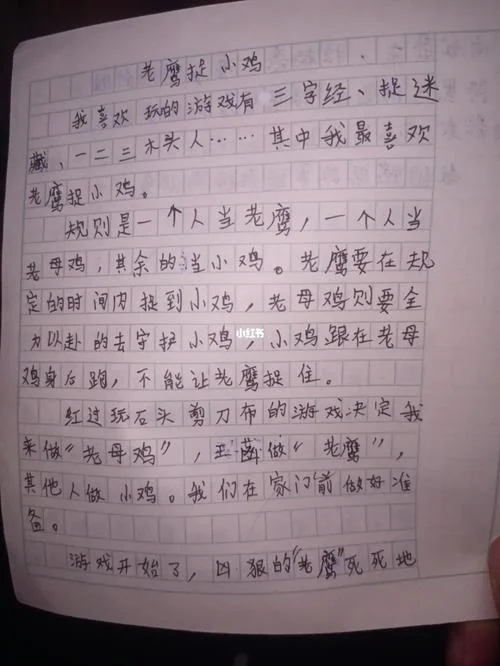 老鹰捉小鸡
我喜欢玩的游戏有三字经、捉迷
藏、一二三木头人……其中我最喜欢
老鹰捉小鸡。
规则是一个人当老鹰，一个人当
老母鸡，其余的当小鸡。老鹰要在规
定的时间内捉到小鸡，老母鸡则要全
力以赴的去守护小鸡，小鸡跟在老母
鸡身后跑，不能让老鹰捉住。
红过玩石头剪刀布的游戏决定我
来做“老母鸡”，做“老鹰”，
其他人做小鸡。我们在家门前做好准
备。
游戏开始了，凶狠的“老鹰”死死地
小红书